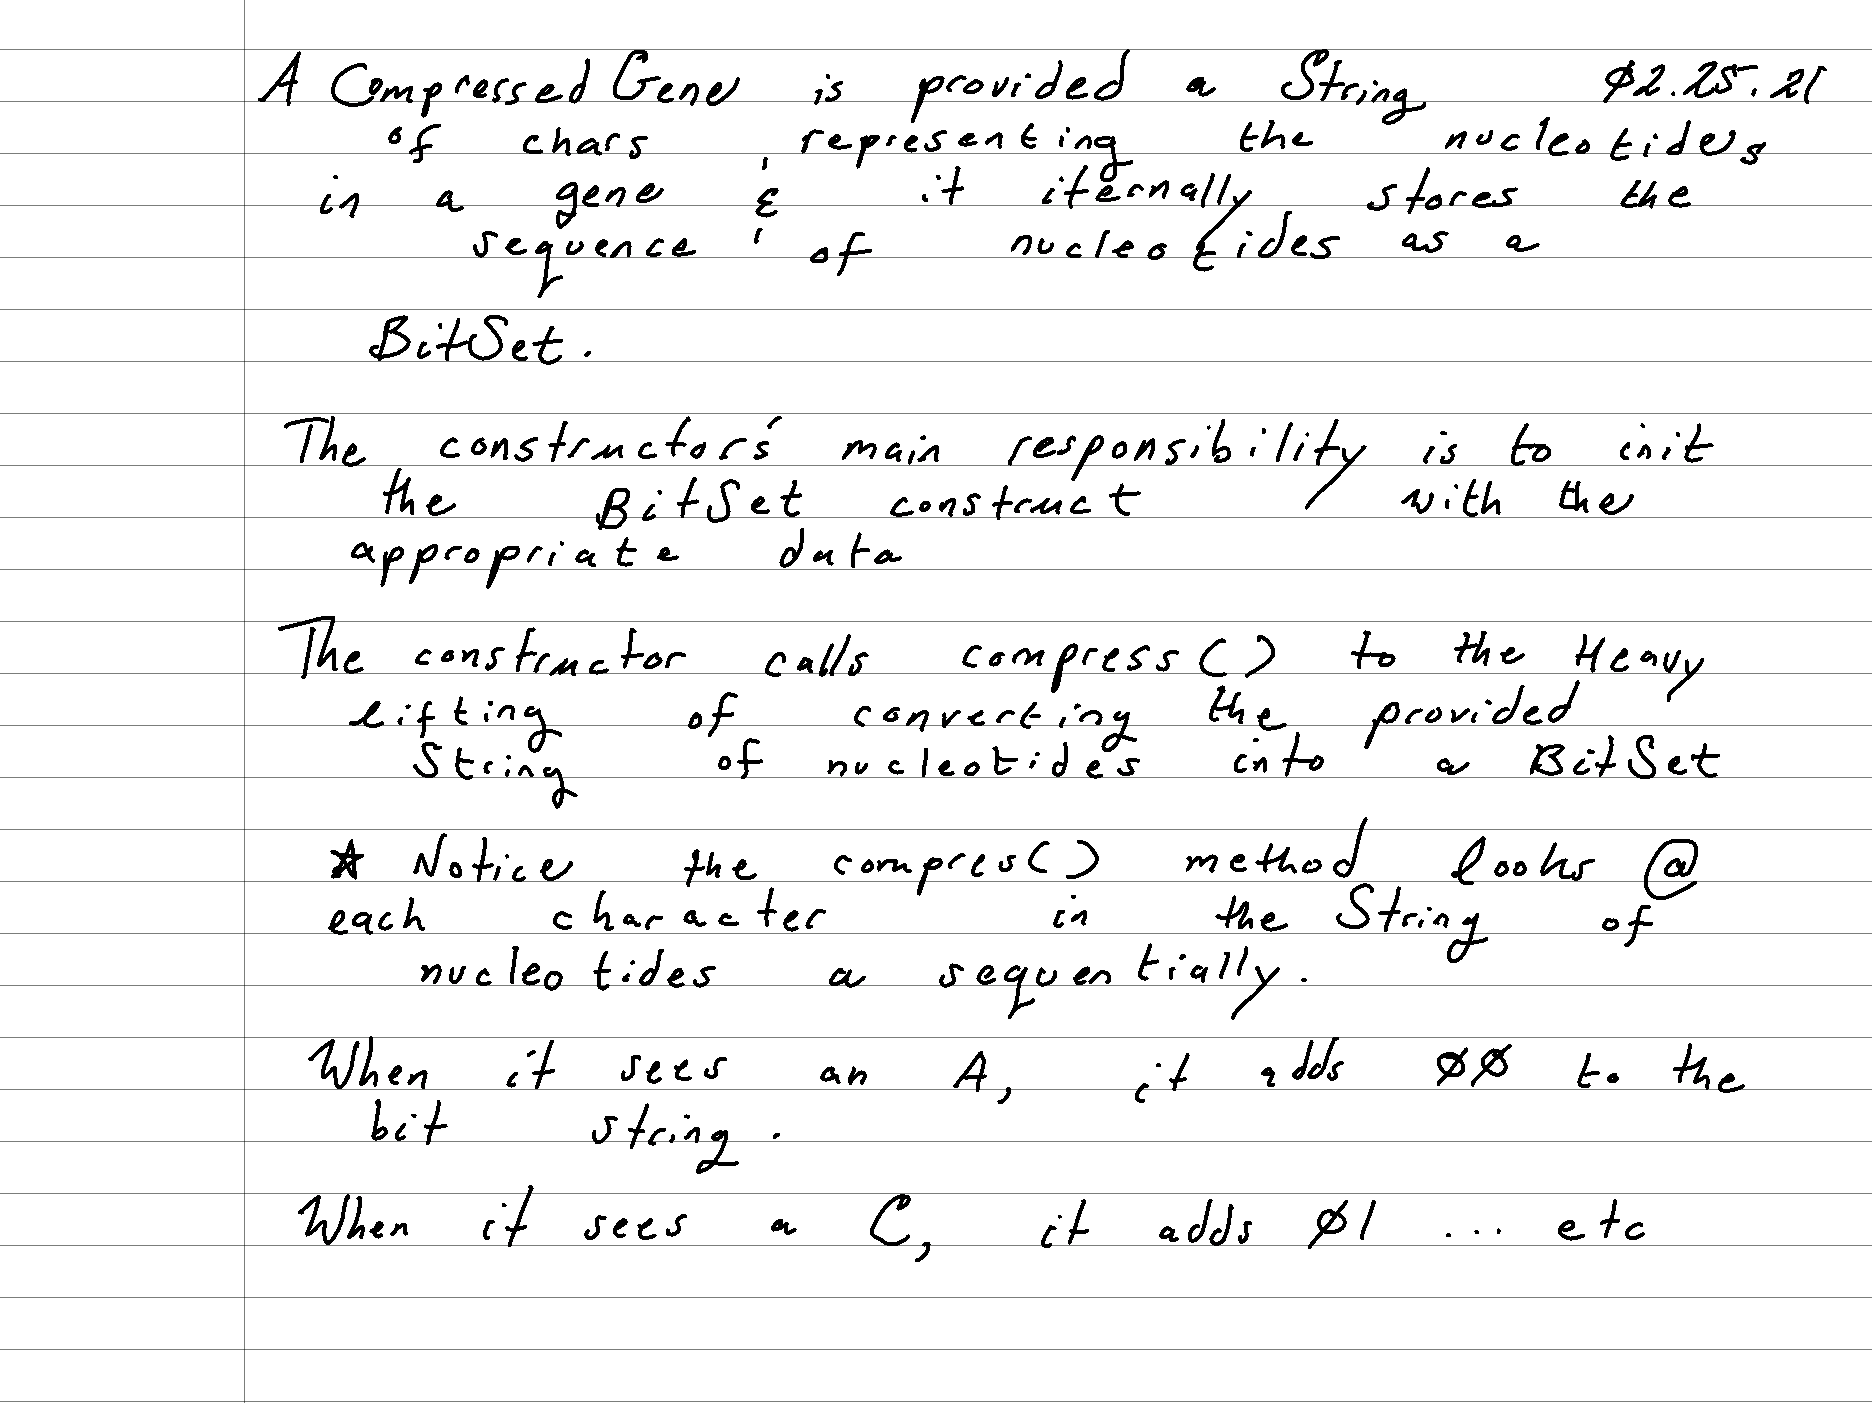 A Compressed Gene is provided a String Ø2.25.21
of chars, representing the nucleotides
in a gene & it iternally stores the
sequence of nucleotides as a
BitSet.
The constructor's main responsibility is to init
the BitSet construct with the
appropriate data
The constructor calls compress() to the Heavy
lifting of converting the provided
String of nucleotides into a BitSet
☆ Notice the compres() method looks @
each character in the String of
nucleotides a sequentially.
When it sees an A, it adds ØØ to the
bit string.
When it sees a C, it adds Ø1 ... etc